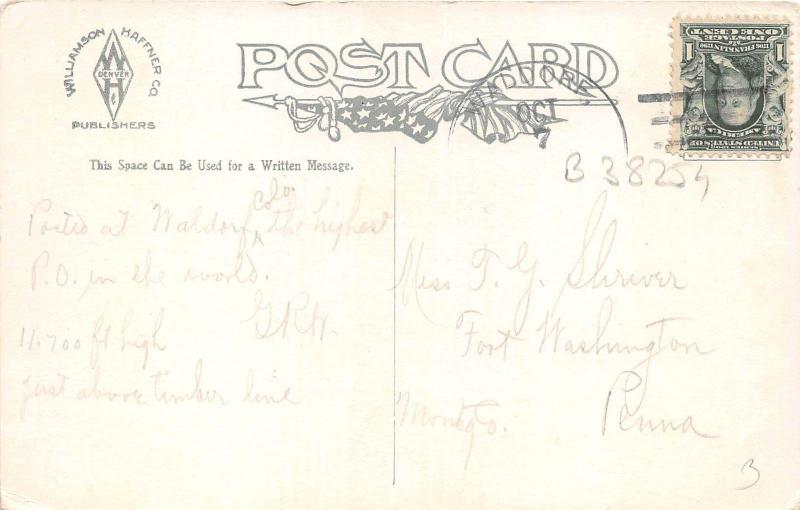 WILLIAMSON HAFFNER CO.
W
DENVER
H
PUBLISHERS
POST CARD
OCT
7
1
ONE CENT
POSTAGE
1706 FRANKLIN 1790
1
SERIES 1902
UNITED STATES OF
AMERICA
B 38254
This Space Can Be Used for a Written Message.
Posted at Waldorf, Colo. the highest
P.O. in the world.
G.R.H.
11.700 ft high
just above timber line
Miss T. G. Shriver
Fort Washington
Montg Co.
Penna
3